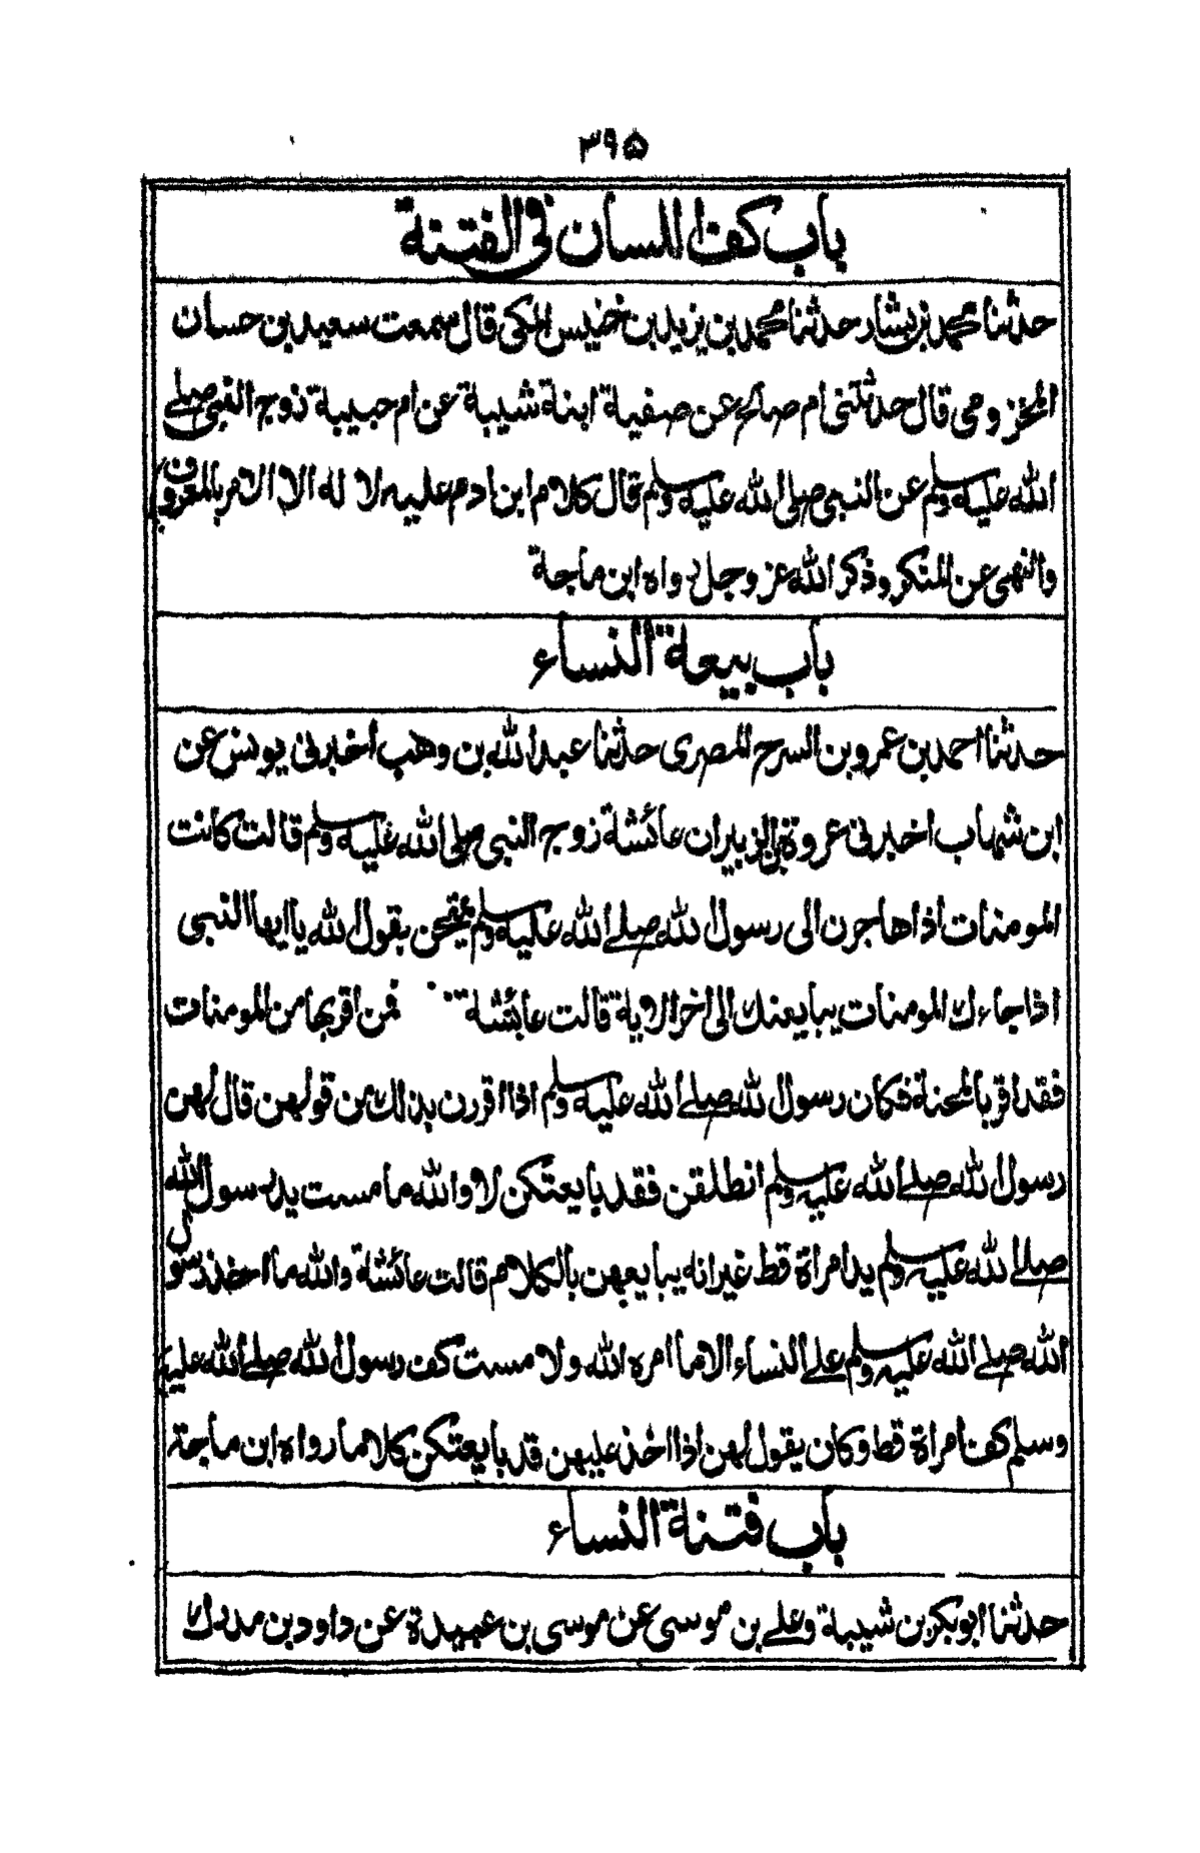 ٣٩٥
باب كف اللسان في الفتنة
حدثنا محمد بن بشار حدثنا محمد بن يزيد بن خنيس المكي قال سمعت سعيد بن حسان
المخزومي قال حدثتنى ام صالح عن صفية ابنة شيبة عن ام حبيبة زوج النبي صلے
الله عليه وسلم عن النبي صلى الله عليه وسلم قال كلام ابن ادم عليه لا له الا الامر بالمعروف
والنهى عن المنكر وذكر الله عز وجل رواه ابن ماجة
باب بيعة النساء
حدثنا احمد بن عمرو بن السرح المصرى حدثنا عبد الله بن وهب أخبرنى يونس عن
ابن شهاب اخبرنى عروة بن الزبير ان عائشة زوج النبى صلى الله عليه وسلم قالت كانت
المومنات اذا هاجرن الى رسول الله صلے الله عليه وسلم يمتحن بقول الله يا ايها النبى
اذا جاءك المومنات يبايعنك الى اخر الاية قالت عائشة فمن اقر بها من المومنات
فقد اقر بالمحنة فكان رسول الله صلے الله عليه وسلم اذا اقررن بذلك من قولهن قال لهن
رسول الله صلے الله عليه وسلم انطلقن فقد بايعتكن لا والله ما مست يد رسول الله
صلے الله عليه وسلم يد امراة قط غير انه يبايعهن بالكلام قالت عائشة والله ما اخذ رسول
الله صلے الله عليه وسلم علے النساء الا ما امره الله ولا مست كف رسول الله صلے الله عليه
وسلم كف امراة قط وكان يقول لهن اذا اخذ عليهن قد بايعتكن كلاما رواه ابن ماجة
باب فتنة النساء
حدثنا ابو بكر بن شيبة وعلے بن موسى عن موسى بن عبيدة عن داود بن مدرك